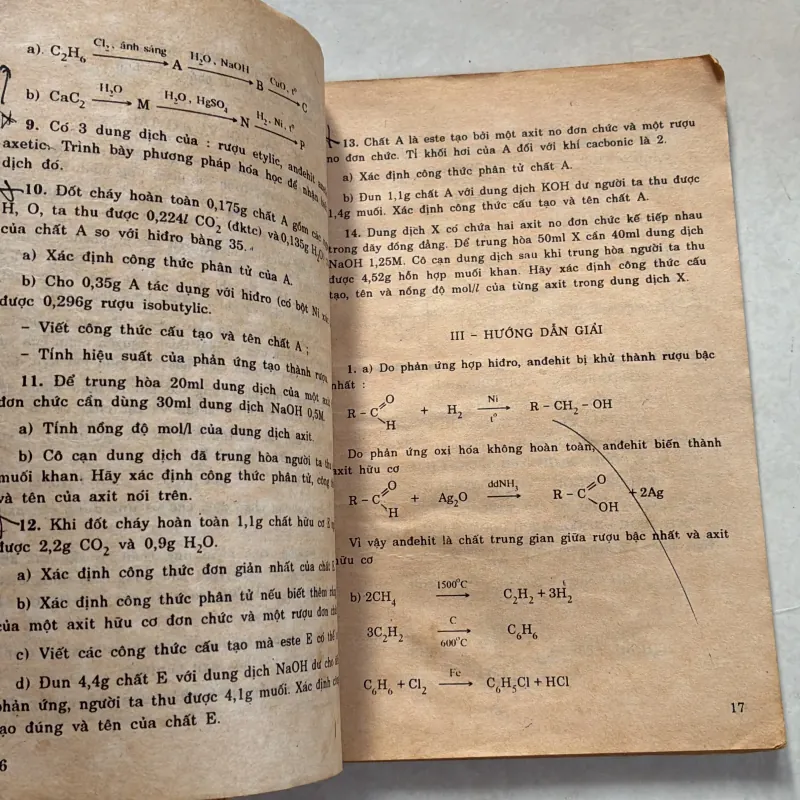 a). C₂H₆ —Cl₂, ánh sáng→ A —H₂O, NaOH→ B —CuO, t°→ C
b) CaC₂ —H₂O→ M —H₂O, HgSO₄→ N —H₂, Ni, t°→ P
9. Có 3 dung dịch của : rượu etylic, anđehit
axetic. Trình bày phương pháp hóa học để nhận
dịch đó.
10. Đốt cháy hoàn toàn 0,175g chất A gồm các
H, O, ta thu được 0,224l CO₂ (đktc) và 0,135g H₂O.
của chất A so với hiđro bằng 35.
a) Xác định công thức phân tử của A.
b) Cho 0,35g A tác dụng với hiđro (có bột Ni
được 0,296g rượu isobutylic.
– Viết công thức cấu tạo và tên chất A ;
– Tính hiệu suất của phản ứng tạo thành rượu
11. Để trung hòa 20ml dung dịch của một
đơn chức cần dùng 30ml dung dịch NaOH 0,5M.
a) Tính nồng độ mol/l của dung dịch axit.
b) Cô cạn dung dịch đã trung hòa người ta thu
muối khan. Hãy xác định công thức phân tử, công
và tên của axit nói trên.
12. Khi đốt cháy hoàn toàn 1,1g chất hữu cơ E
được 2,2g CO₂ và 0,9g H₂O.
a) Xác định công thức đơn giản nhất của chất E
b) Xác định công thức phân tử nếu biết thêm
của một axit hữu cơ đơn chức và một rượu đơn
c) Viết các công thức cấu tạo mà este E có thể
d) Đun 4,4g chất E với dung dịch NaOH dư cho
phản ứng, người ta thu được 4,1g muối. Xác định
tạo đúng và tên của chất E.
6
13. Chất A là este tạo bởi một axit no đơn chức và một rượu
no đơn chức. Tỉ khối hơi của A đối với khí cacbonic là 2.
a) Xác định công thức phân tử chất A.
b) Đun 1,1g chất A với dung dịch KOH dư người ta thu được
1,4g muối. Xác định công thức cấu tạo và tên chất A.
14. Dung dịch X có chứa hai axit no đơn chức kế tiếp nhau
trong dãy đồng đẳng. Để trung hòa 50ml X cần 40ml dung dịch
NaOH 1,25M. Cô cạn dung dịch sau khi trung hòa người ta thu
được 4,52g hỗn hợp muối khan. Hãy xác định công thức cấu
tạo, tên và nồng độ mol/l của từng axit trong dung dịch X.
III – HƯỚNG DẪN GIẢI
1. a) Do phản ứng hợp hiđro, anđehit bị khử thành rượu bậc
nhất :
R – C(=O)H + H₂ —Ni, t°→ R – CH₂ – OH
Do phản ứng oxi hóa không hoàn toàn, anđehit biến thành
axit hữu cơ
R – C(=O)H + Ag₂O —ddNH₃→ R – C(=O)OH + 2Ag
Vì vậy anđehit là chất trung gian giữa rượu bậc nhất và axit
hữu cơ
b) 2CH₄ —1500°C→ C₂H₂ + 3H₂
3C₂H₂ —C, 600°C→ C₆H₆
C₆H₆ + Cl₂ —Fe→ C₆H₅Cl + HCl
17